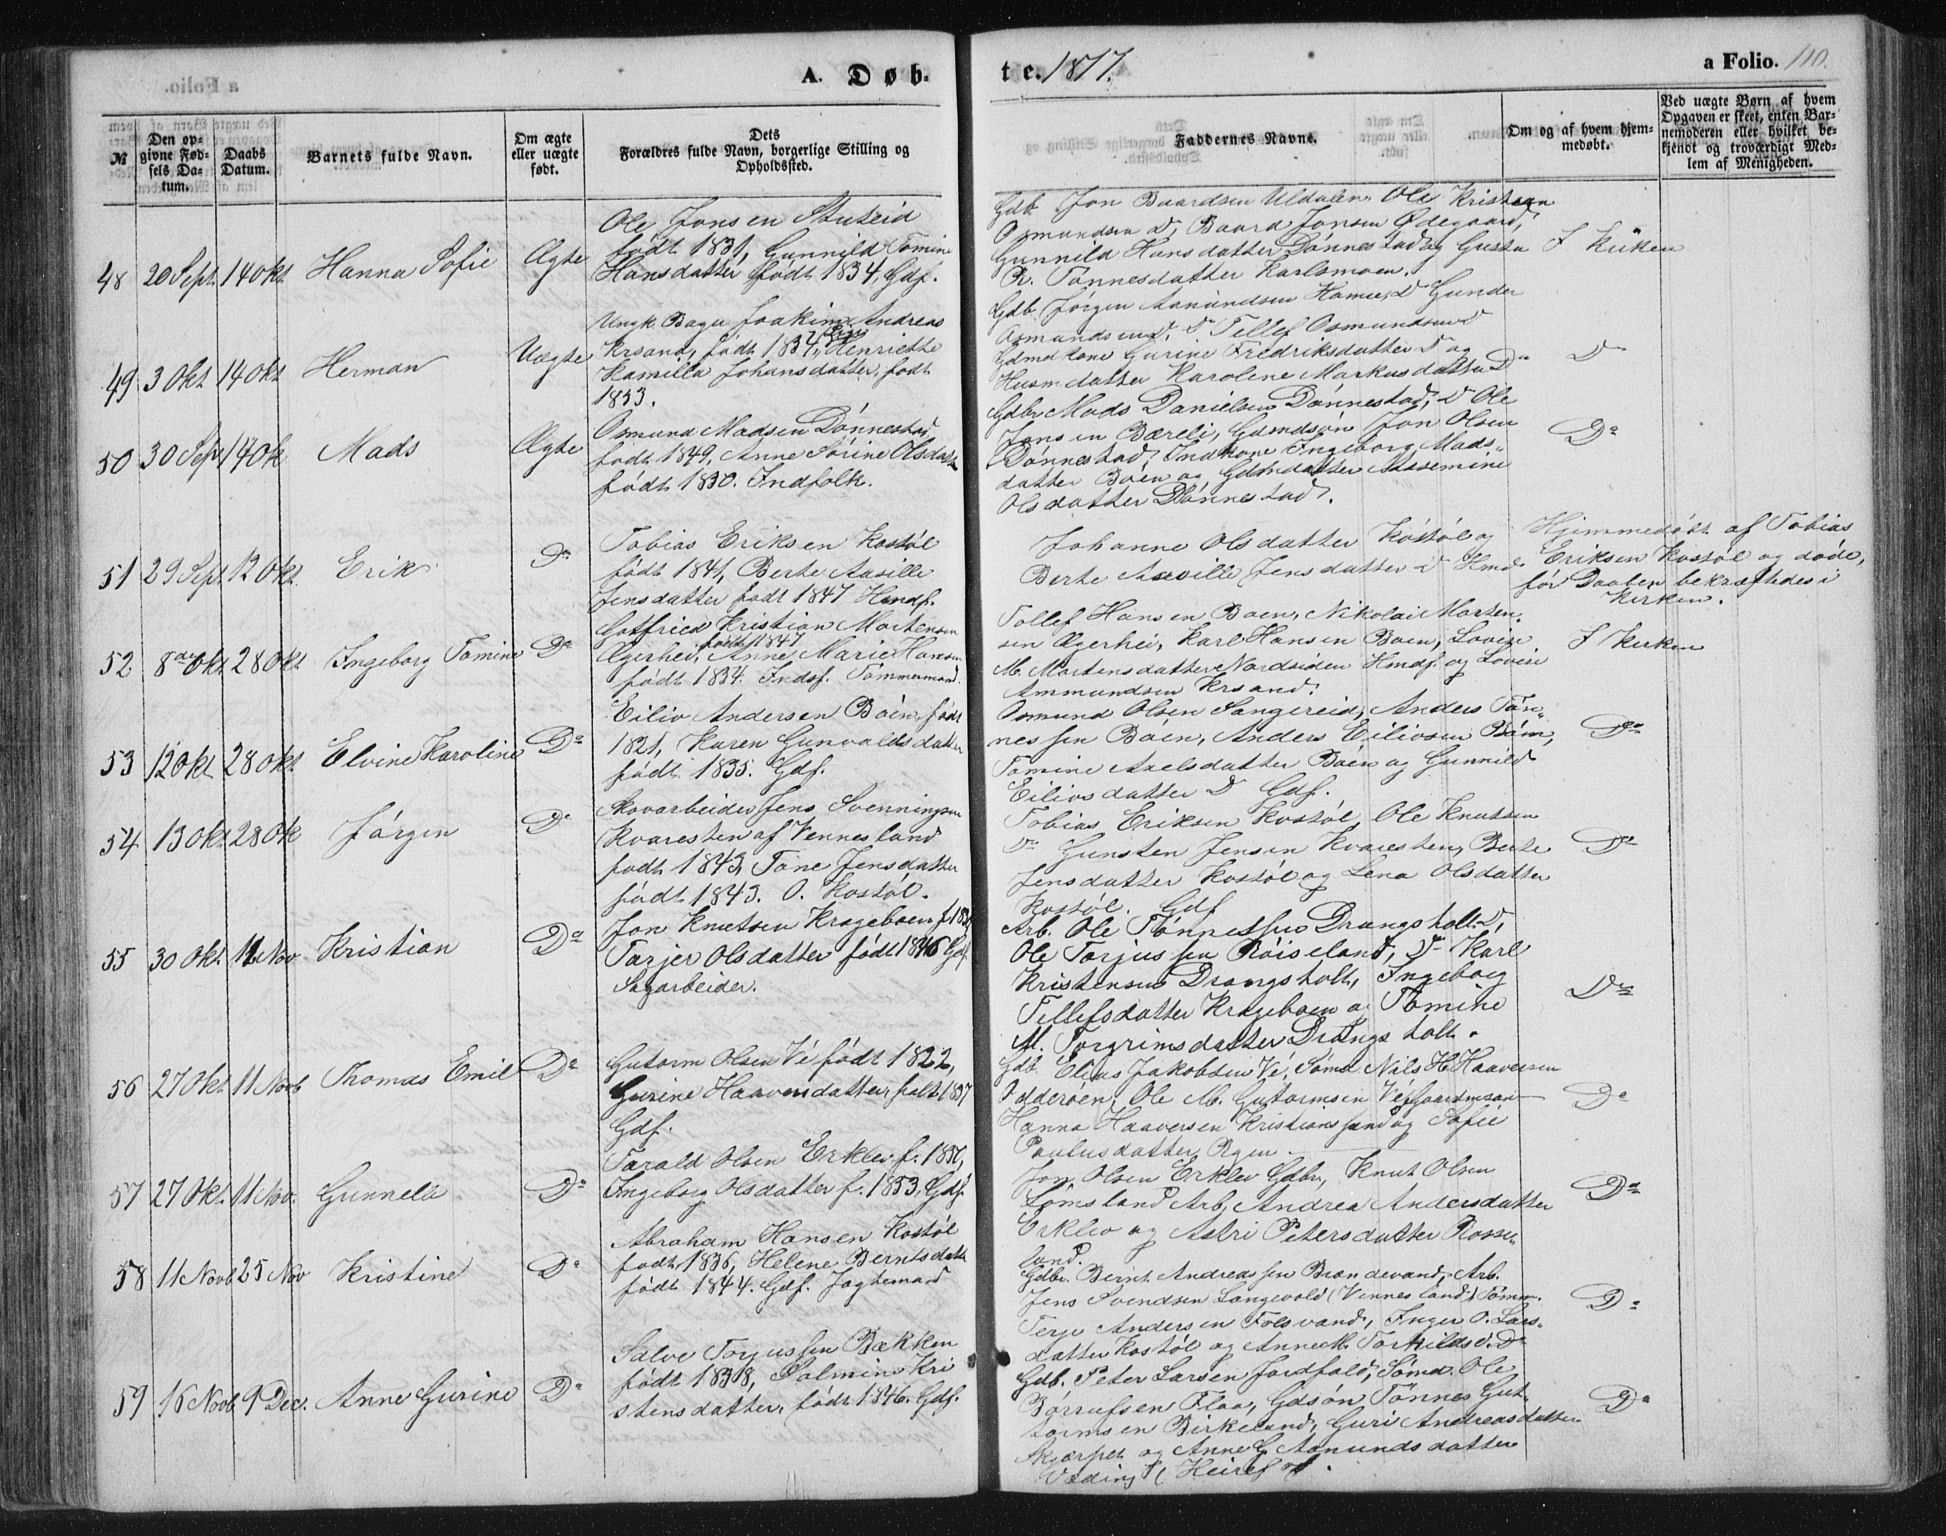 A. Døb-
te. 1877.
a Folio. 110.
№
Den opgivne Fødsels Datum.
Daabs Datum.
Barnets fulde Navn.
Om ægte eller uægte født.
Dets Forældres fulde Navn, borgerlige Stilling og Opholdssted.
Faddernes Navne.
Om og af hvem hjemmedøbt.
Ved uægte Børn af hvem Opgaven er skeet, enten Barnemoderen eller hvilket bekjendt og troværdigt Medlem af Menigheden.
48 20 Sept 14 Okt Hanna Sofie Ægte
Ole Jonsen Stutreid
født 1831, Gunnild Tomine
Hansdatter født 1834, Gdf.
Gdb. Jon Baardsen Uldalen, Ole Kristian
Osmundsen Do, Baard Jonsen Ødegaard,
Gunnild Hansdatter Dønnestad og Gusta
R. Tønnesdatter Karlsmoen.
I Kirken
49 3 Okt 14 Okt Herman Uægte
Ungk. Bager Joakim Andreas
Krsand, født 1834, Pige Henriette
Kamilla Johansdatter, født
1853.
Gdb. Jørgen Aanundsen Hamre, Do Gunder
Osmundsen Do, Do Tellef Osmundsen Do
Gdmd kone Gurine Fredriksdatter Do og
Husmdatter Karoline Markusdatter Do
Do
50 30 Sep 14 Ok Mads Ægte
Osmund Madsen Dønnestad
født 1849, Anne Sørine Olsdatt
født 1850. Indfolk.
Gdbr Mads Danielsen Dønnestad, Do Ole
Jonsen Bæreli, Gdmdsøn Jon Olsen
Dønnestad, Indkone Ingeborg Mads-
datter Boen og Gdmdatter Aasemine
Olsdatter Dønnestad.
Do
51 29 Sep 12 Okt. Erik Do
Tobias Eriksen Kostøl
født 1841, Berte Aasille
Jensdatter født 1847 Hmdf.
Johanne Olsdatter Kostøl og
Berte Aasille Jensdatter Do Hmd
Hjemmedøbt af Tobias
Eriksen Kostøl og døde,
før Daaben bekræftedes i
Kirken.
52 8de Okt 28 Okt Ingeborg Tomine Do
Gotfried Kristian Mortensen
Ægerhei, født 1847 Anne Marie Hansen
født 1834. Indsf. Tømmermand.
Tollef Hansen Boen, Nikolai Morten-
sen Ægerhei, Karl Hansen Boen, Lovise
M. Mortensdatter Nordsiden Hmdf. og Lovise
Ammundsen Krsand.
I Kirken
53 12 Okt 28 Okt. Elvine Karoline Do
Eiliv Andersen Boen, født
1821, Karen Gunvaldsdatter
født 1835. Gdf.
Osmund Olsen Sangereid, Anders Tøn-
nessen Boen, Anders Eilivsen Boen,
Tomine Axelsdatter Boen og Gunnild
Eilivsdatter Do Gdf.
Do
54 13 Okt 28 Ok Jørgen Do
Skovarbeider Jens Svenningsen
Kvaresten af Vennesland
født 1843, Tone Jensdatter
født 1843. O. Kostøl.
Tobias Eriksen Kostøl, Ole Knutsen
Do Gunsten Jensen Kvaresten, Berte
Jensdatter Kostøl og Lena Olsdatter
Kostøl. Gdf
Do
55 30 Okt 11 Nov Kristian Do
Jon Knutsen Krageboen f. 183
Tarjer Olsdatter født 1846 Gdf.
Sagarbeider.
Arb. Ole Tønnessen Drangsholt Do,
Ole Torjussen Røiseland, Do Karl
Kristensen Drangsholt, Ingeborg
Tellefsdatter Krageboen og Tomine
M. Torgrimsdatter Drangsholt.
Do
56 27 Okt 11 Novb Thomas Emil Do
Gutorm Olsen Vé født 1822,
Gurine Haavorsdatter, født 1837
Gdf.
Gdb. Elias Jakobsen Vé, Sømd Nils H. Haaversen
Odderoen, Ole M. Gutormsen Vé
Hanna Haaversen Kristianssand og Sofie
Paulusdatter Rgen.
Do
57 27 Okt. 11 Nov. Gunnela Do
Tarald Olsen Erklev f. 1850,
Ingeborg Olsdatter f. 1853, Gdf.
Jon Olsen Erklev Gdbr, Knut Olsen
Lømsland Arb, Andrea Andersdatter
Erklev og Astri Petersdatter Rosse-
land.
Do
58 11 Novb 25 Nov Kristine Do
Abraham Hansen Kostøl
født 1836, Helene Berntsdatt
født 1844. Gdf. Jagtemand
Gdbr. Bernt Andreassen Brændevand, Arb.
Jens Svendsen Langevold (Vennesland) Tømm.
Terje Andersen Folsvand, Inger O. Lars-
datter Kostøl og Anne M. Torkildsd. Do
Do
59 16 Novb. 9 Dec. Anne Gurine Do
Salve Torjussen Bækken
født 1838, Salmine Kri
stensdatter, født 1846. Gdf.
Gdb. Peter Larsen Jordfald, Sømd. Ole
Børrufsen Flaa, Gdsøn Tønnes Gut
tormsen Birkeland, Guri Andreasdatter
Skjærpet og Anne G. Aanundsdatter
Væding
Do